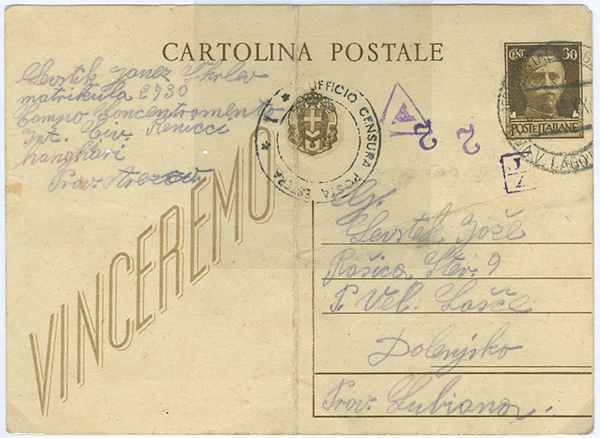 CARTOLINA POSTALE
CENT. 30
POSTE ITALIANE
Levstik Janez
matrikula 2930
Campo Concentramento
Int. Civ. Renicci
Anghiari
Prov. Arezzo
UFFICIO CENSURA POSTA ESTERA
2 2
VINCEREMO
Levstik Jože
Rašica Štev. 9
P. Vel. Lašče
Dolenjsko
Prov. Lubiana.